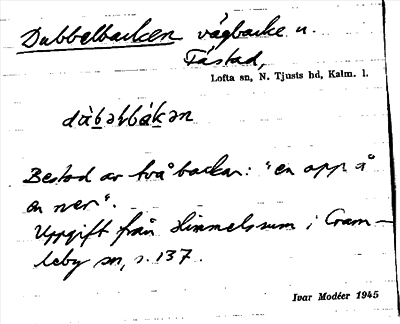 Dubbelbacken vägbacke u.
Fåstad,
Lofta sn, N. Tjusts hd, Kalm. l.
dùb̲əlbák̲ən
Bestod av två backar: "en opp å
en ner".
Uppgift från Himmelsrum i Gam-
leby sn, s. 137.
Ivar Modéer 1945